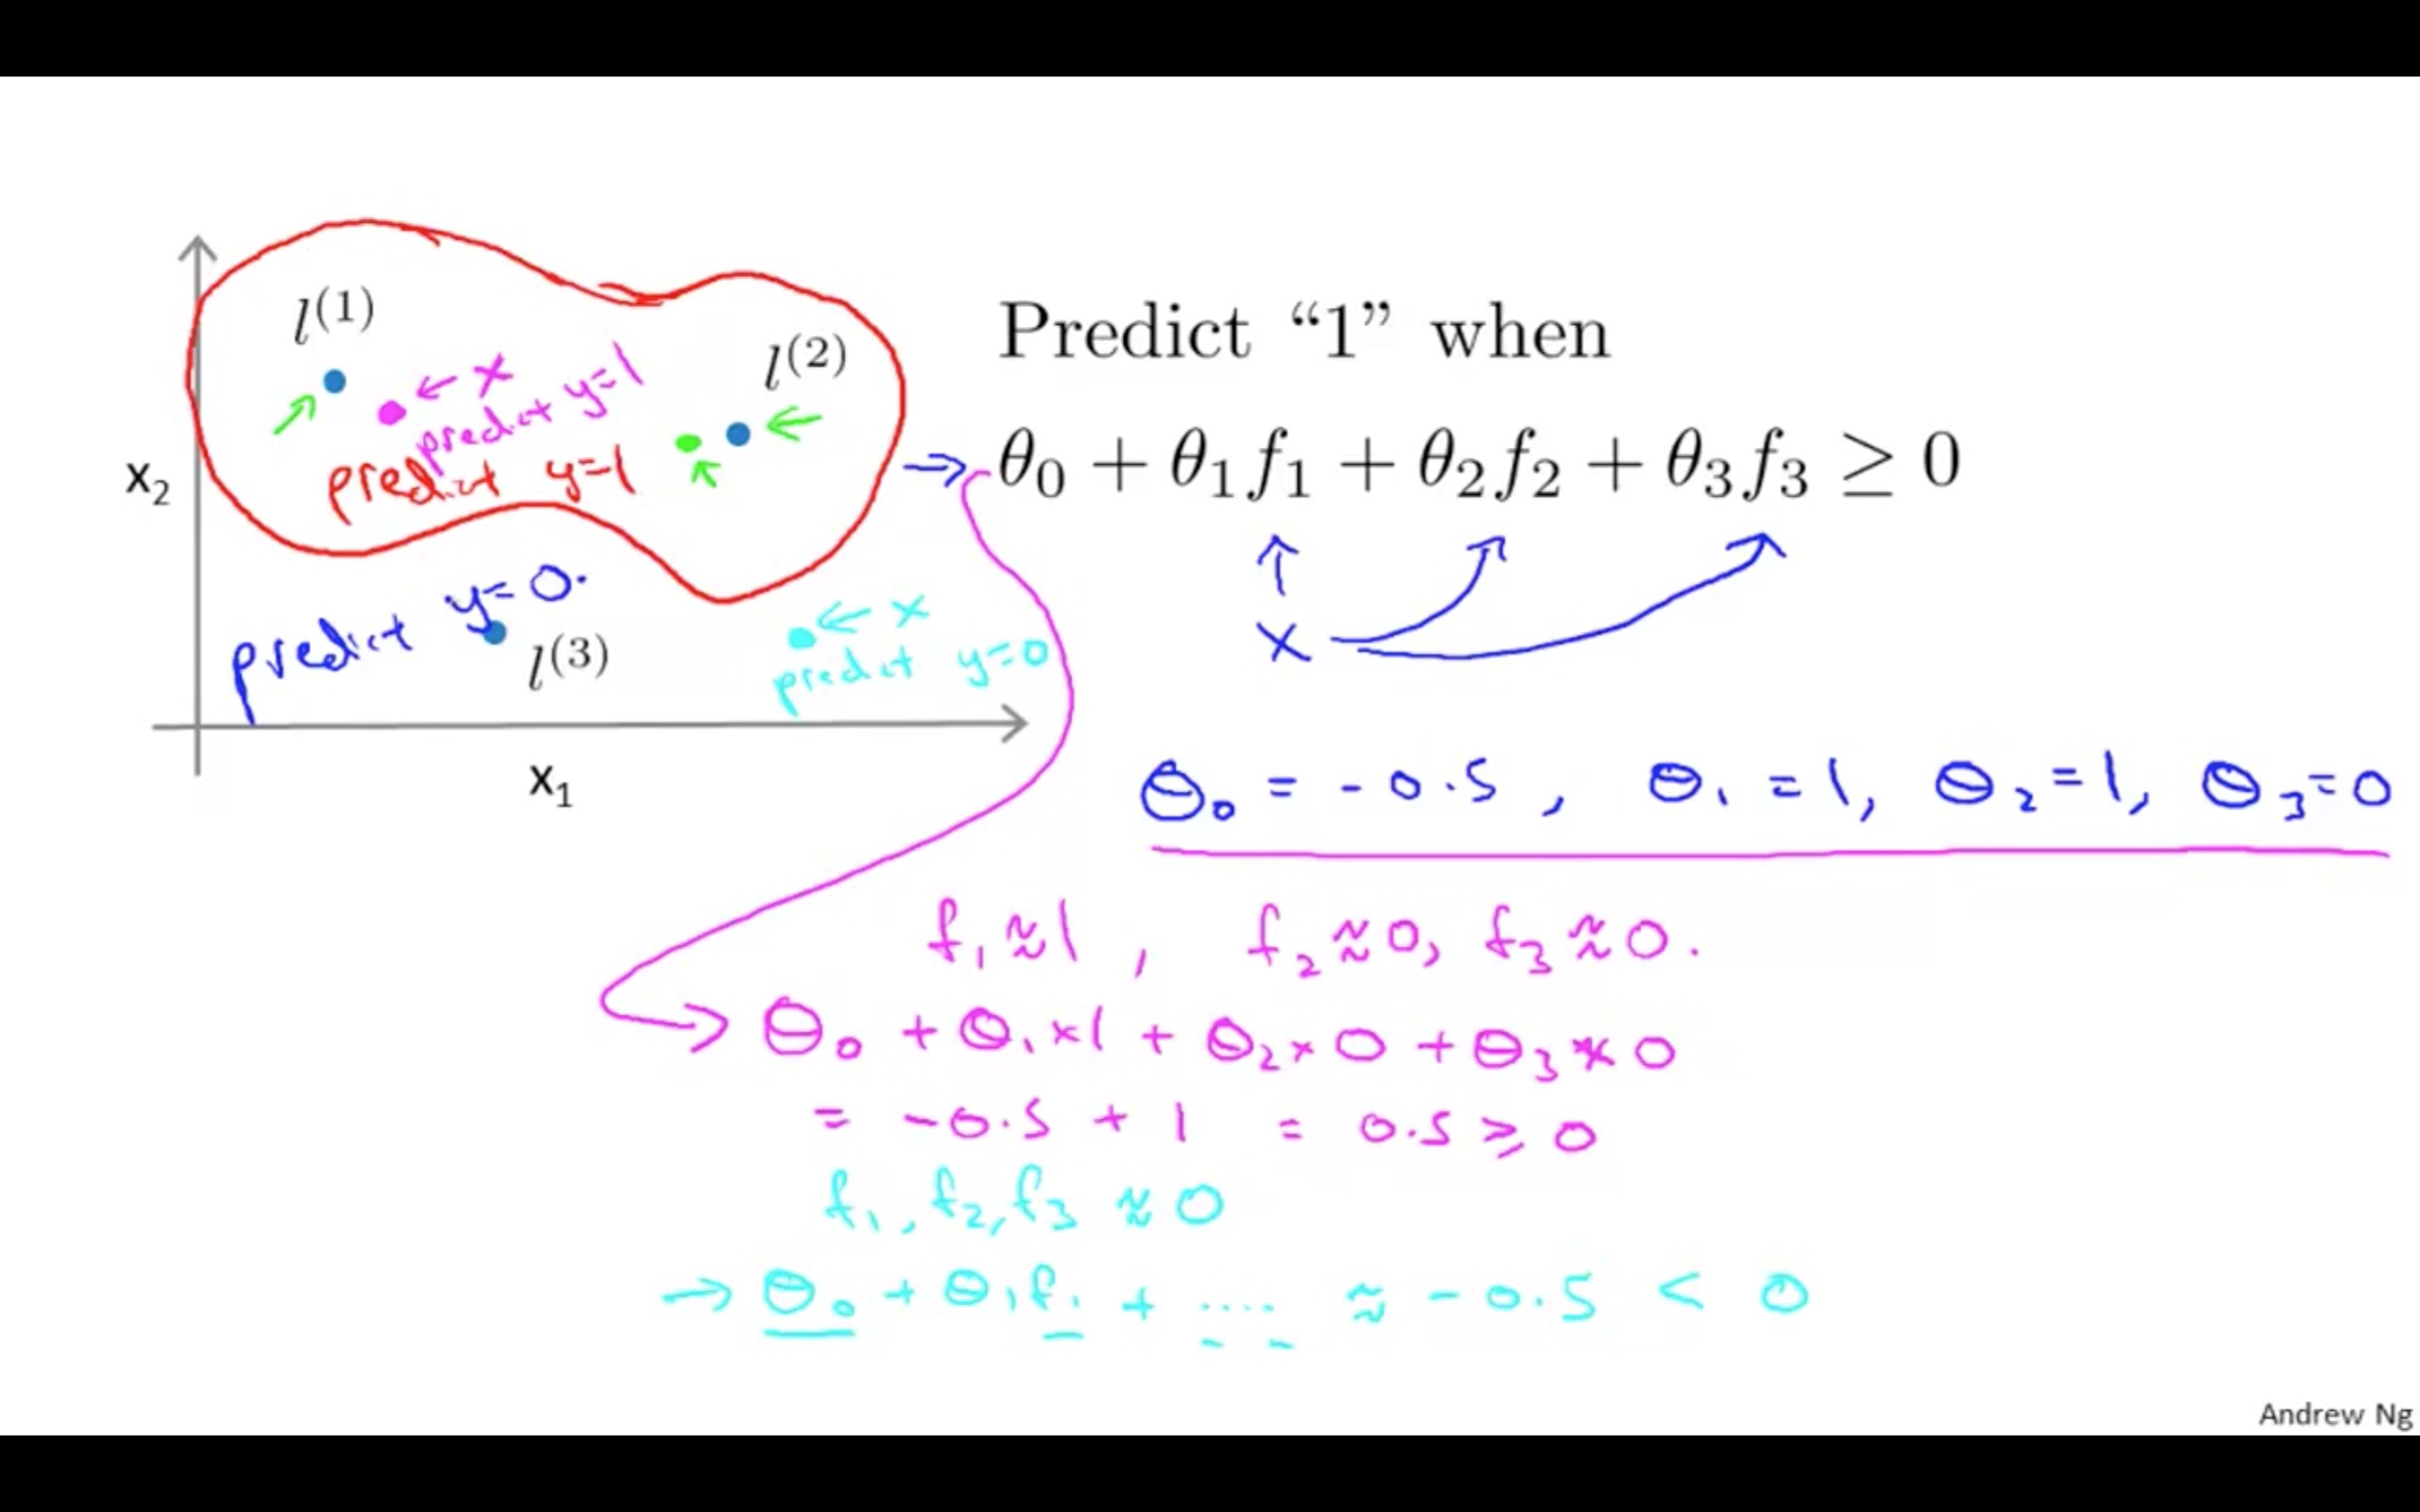 l^(1)
l^(2)
← x
predict y=1
predict y=1
x₂
predict y=0.
l^(3)
← x
predict y=0
x₁
Predict “1” when
⇒ θ₀ + θ₁f₁ + θ₂f₂ + θ₃f₃ ≥ 0
x
θ₀ = -0.5, θ₁ = 1, θ₂ = 1, θ₃ = 0
f₁ ≈ 1, f₂ ≈ 0, f₃ ≈ 0.
θ₀ + θ₁ × 1 + θ₂ × 0 + θ₃ × 0
= -0.5 + 1 = 0.5 ≥ 0
f₁, f₂, f₃ ≈ 0
→ θ₀ + θ₁f₁ + .... ≈ -0.5 < 0
Andrew Ng